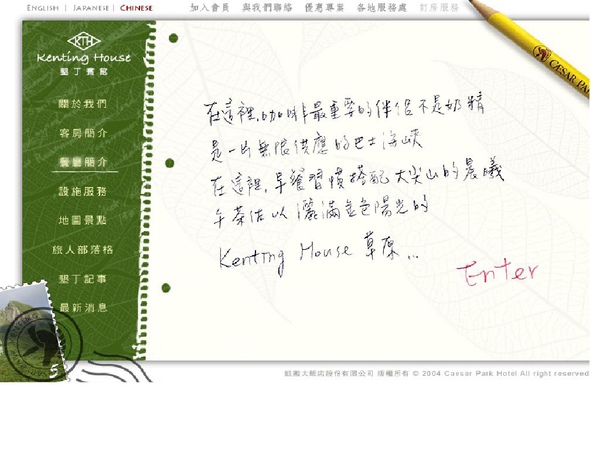 ENGLISH | JAPANESE | CHINESE
加入會員 與我們聯絡 優惠專案 各地服務處 訂房服務
KTH
Kenting House
墾丁賓館
CAESAR PA
關於我們
客房簡介
餐廳簡介
設施服務
地圖景點
旅人部落格
墾丁記事
最新消息
在這裡,咖啡最重要的伴侶不是奶精
是一出無限供應的巴士海峽
在這裡,早餐習慣搭配大尖山的晨曦
午茶佐以灑滿金色陽光的
Kenting House 草原...
Enter
5
大飯店股份有限公司 版權所有 © 2004 Caesar Park Hotel All right reserved